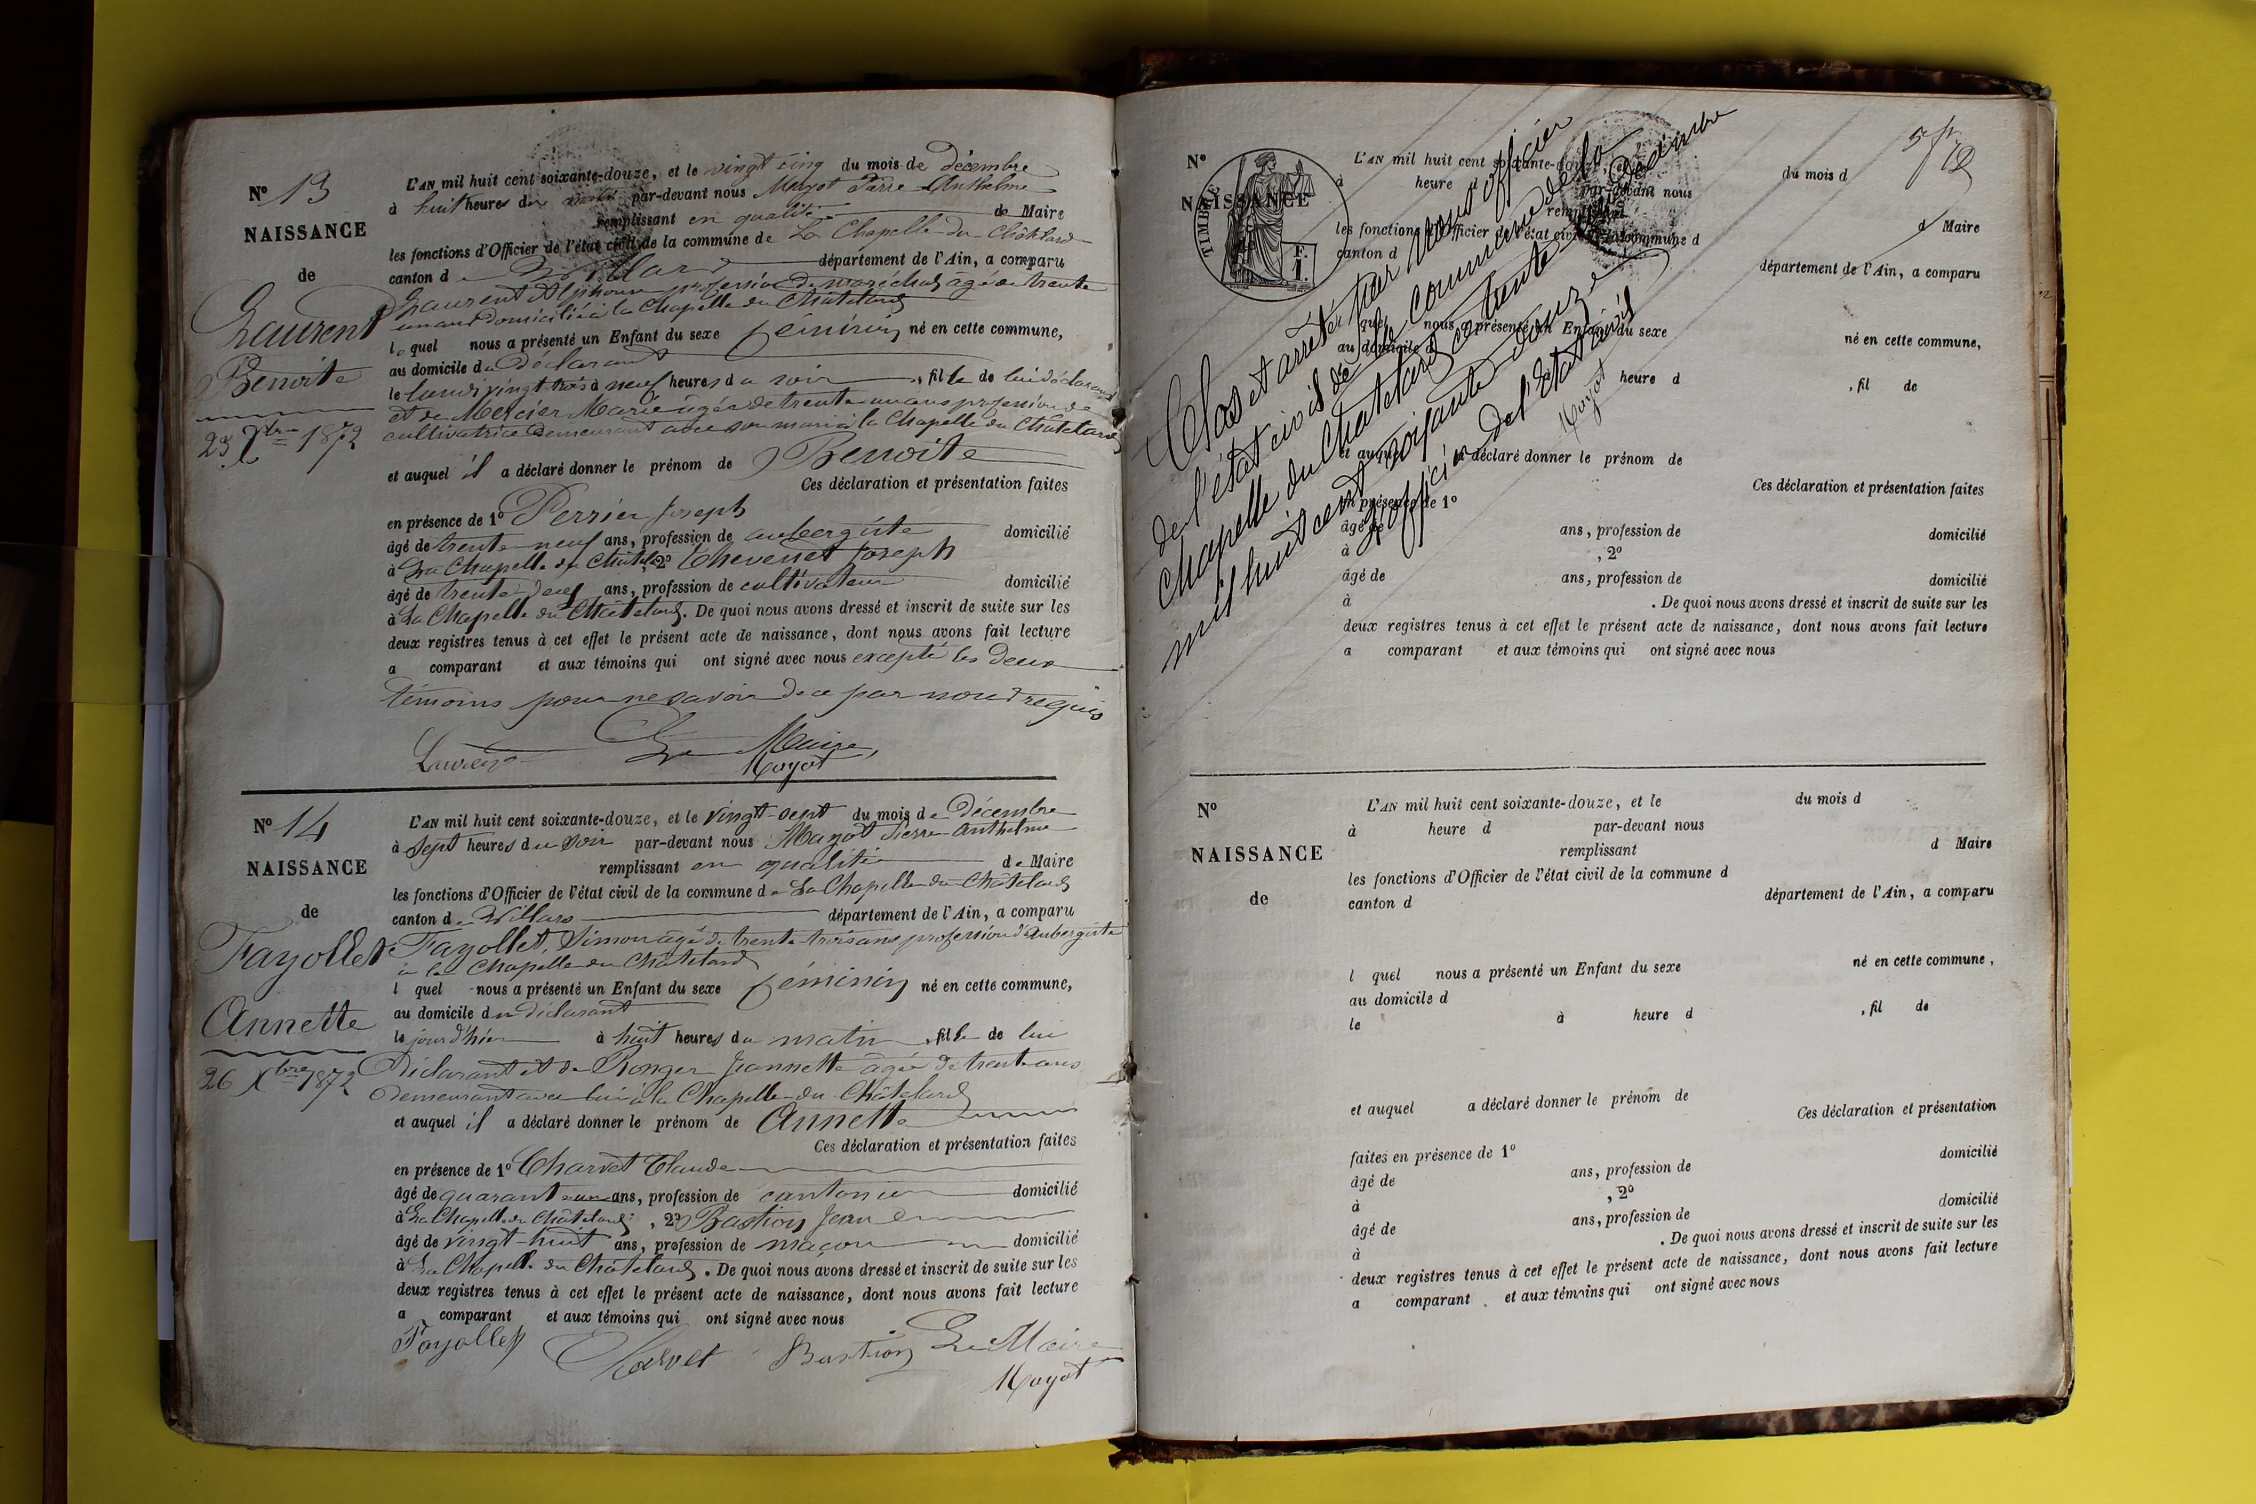 N° 13
NAISSANCE
de
Laurent
Benoite
23 Xbre 1872
L'AN mil huit cent soixante-douze, et le vingt cinq du mois de décembre
à huit heures du par-devant nous Mayot Pierre Anthelme
remplissant en qualité de Maire
les fonctions d'Officier de l'état civil de la commune de La Chapelle du Châtelard
canton de Villars département de l'Ain, a comparu
Laurent Alphonse profession de maréchal âgé de trente
un ans domicilié à la Chapelle du Châtelard
lequel nous a présenté un Enfant du sexe féminin né en cette commune,
au domicile du déclarant
le lundi vingt trois à neuf heures du soir, fille de lui déclarant
et de Mercier Marie âgée de trente un ans profession de
cultivatrice demeurant avec son mari à la Chapelle du Châtelard
et auquel il a déclaré donner le prénom de Benoite
Ces déclaration et présentation faites
en présence de 1° Perrier Joseph
âgé de trente neuf ans, profession de aubergiste domicilié
à La Chapelle du Châtel, 2° Thevenet Joseph
âgé de trente deux ans, profession de cultivateur domicilié
à La Chapelle du Châtelard. De quoi nous avons dressé et inscrit de suite sur les
deux registres tenus à cet effet le présent acte de naissance, dont nous avons fait lecture
a comparant et aux témoins qui ont signé avec nous excepté les deux
témoins pour ne savoir de ce par nous requis
Laurent Le Maire,
Mayot
N° 14
NAISSANCE
de
Fayollet
Annette
26 Xbre 1872
L'AN mil huit cent soixante-douze, et le vingt-sept du mois de décembre
à sept heures du soir par-devant nous Mayot Pierre Anthelme
remplissant en qualité de Maire
les fonctions d'Officier de l'état civil de la commune de La Chapelle du Châtelard
canton de Villars département de l'Ain, a comparu
Fayollet Simon âgé de trente trois ans profession d'aubergiste
à la Chapelle du Châtelard
l quel nous a présenté un Enfant du sexe féminin né en cette commune,
au domicile du déclarant
le jour d'hier à huit heures du matin, fille de lui
déclarant et de Ronger Jeannette âgée de trente ans
demeurant avec lui à la Chapelle du Châtelard
et auquel il a déclaré donner le prénom de Annette
Ces déclaration et présentation faites
en présence de 1° Charvet Claude
âgé de quarante un ans, profession de cantonier domicilié
à La Chapelle du Châtelard, 2° Bastion Jean
âgé de vingt-huit ans, profession de maçon domicilié
à La Chapelle du Châtelard. De quoi nous avons dressé et inscrit de suite sur les
deux registres tenus à cet effet le présent acte de naissance, dont nous avons fait lecture
a comparant et aux témoins qui ont signé avec nous
Fayollet Charvet Bastion Le Maire
Mayot
N°
NAISSANCE
TIMBRE
F.
1.
L'AN mil huit cent soixante-douze,
du mois d
à heure d par-devant nous
remplissant
d Maire
les fonctions d'Officier de l'état civil de la commune d
canton d
département de l'Ain, a comparu
l quel nous a présenté un Enfant du sexe
né en cette commune,
au domicile d
heure d , fil de
et auquel a déclaré donner le prénom de
Ces déclaration et présentation faites
en présence de 1°
âgé de ans, profession de domicilié
à , 2°
âgé de ans, profession de domicilié
à . De quoi nous avons dressé et inscrit de suite sur les
deux registres tenus à cet effet le présent acte de naissance, dont nous avons fait lecture
a comparant et aux témoins qui ont signé avec nous
Clos et arrêté par nous officier
de l'état civil de la commune de la
Chapelle du Chatelard ce trente Décembre
mil huit cent soixante douze
L'officier de l'état civil
Mayot
N°
NAISSANCE
de
L'AN mil huit cent soixante-douze, et le du mois d
à heure d par-devant nous
remplissant d Maire
les fonctions d'Officier de l'état civil de la commune d
canton d département de l'Ain, a comparu
l quel nous a présenté un Enfant du sexe né en cette commune,
au domicile d
le à heure d , fil de
et auquel a déclaré donner le prénom de
Ces déclaration et présentation
faites en présence de 1° domicilié
âgé de ans, profession de
à , 2° domicilié
âgé de ans, profession de
à . De quoi nous avons dressé et inscrit de suite sur les
deux registres tenus à cet effet le présent acte de naissance, dont nous avons fait lecture
a comparant et aux témoins qui ont signé avec nous